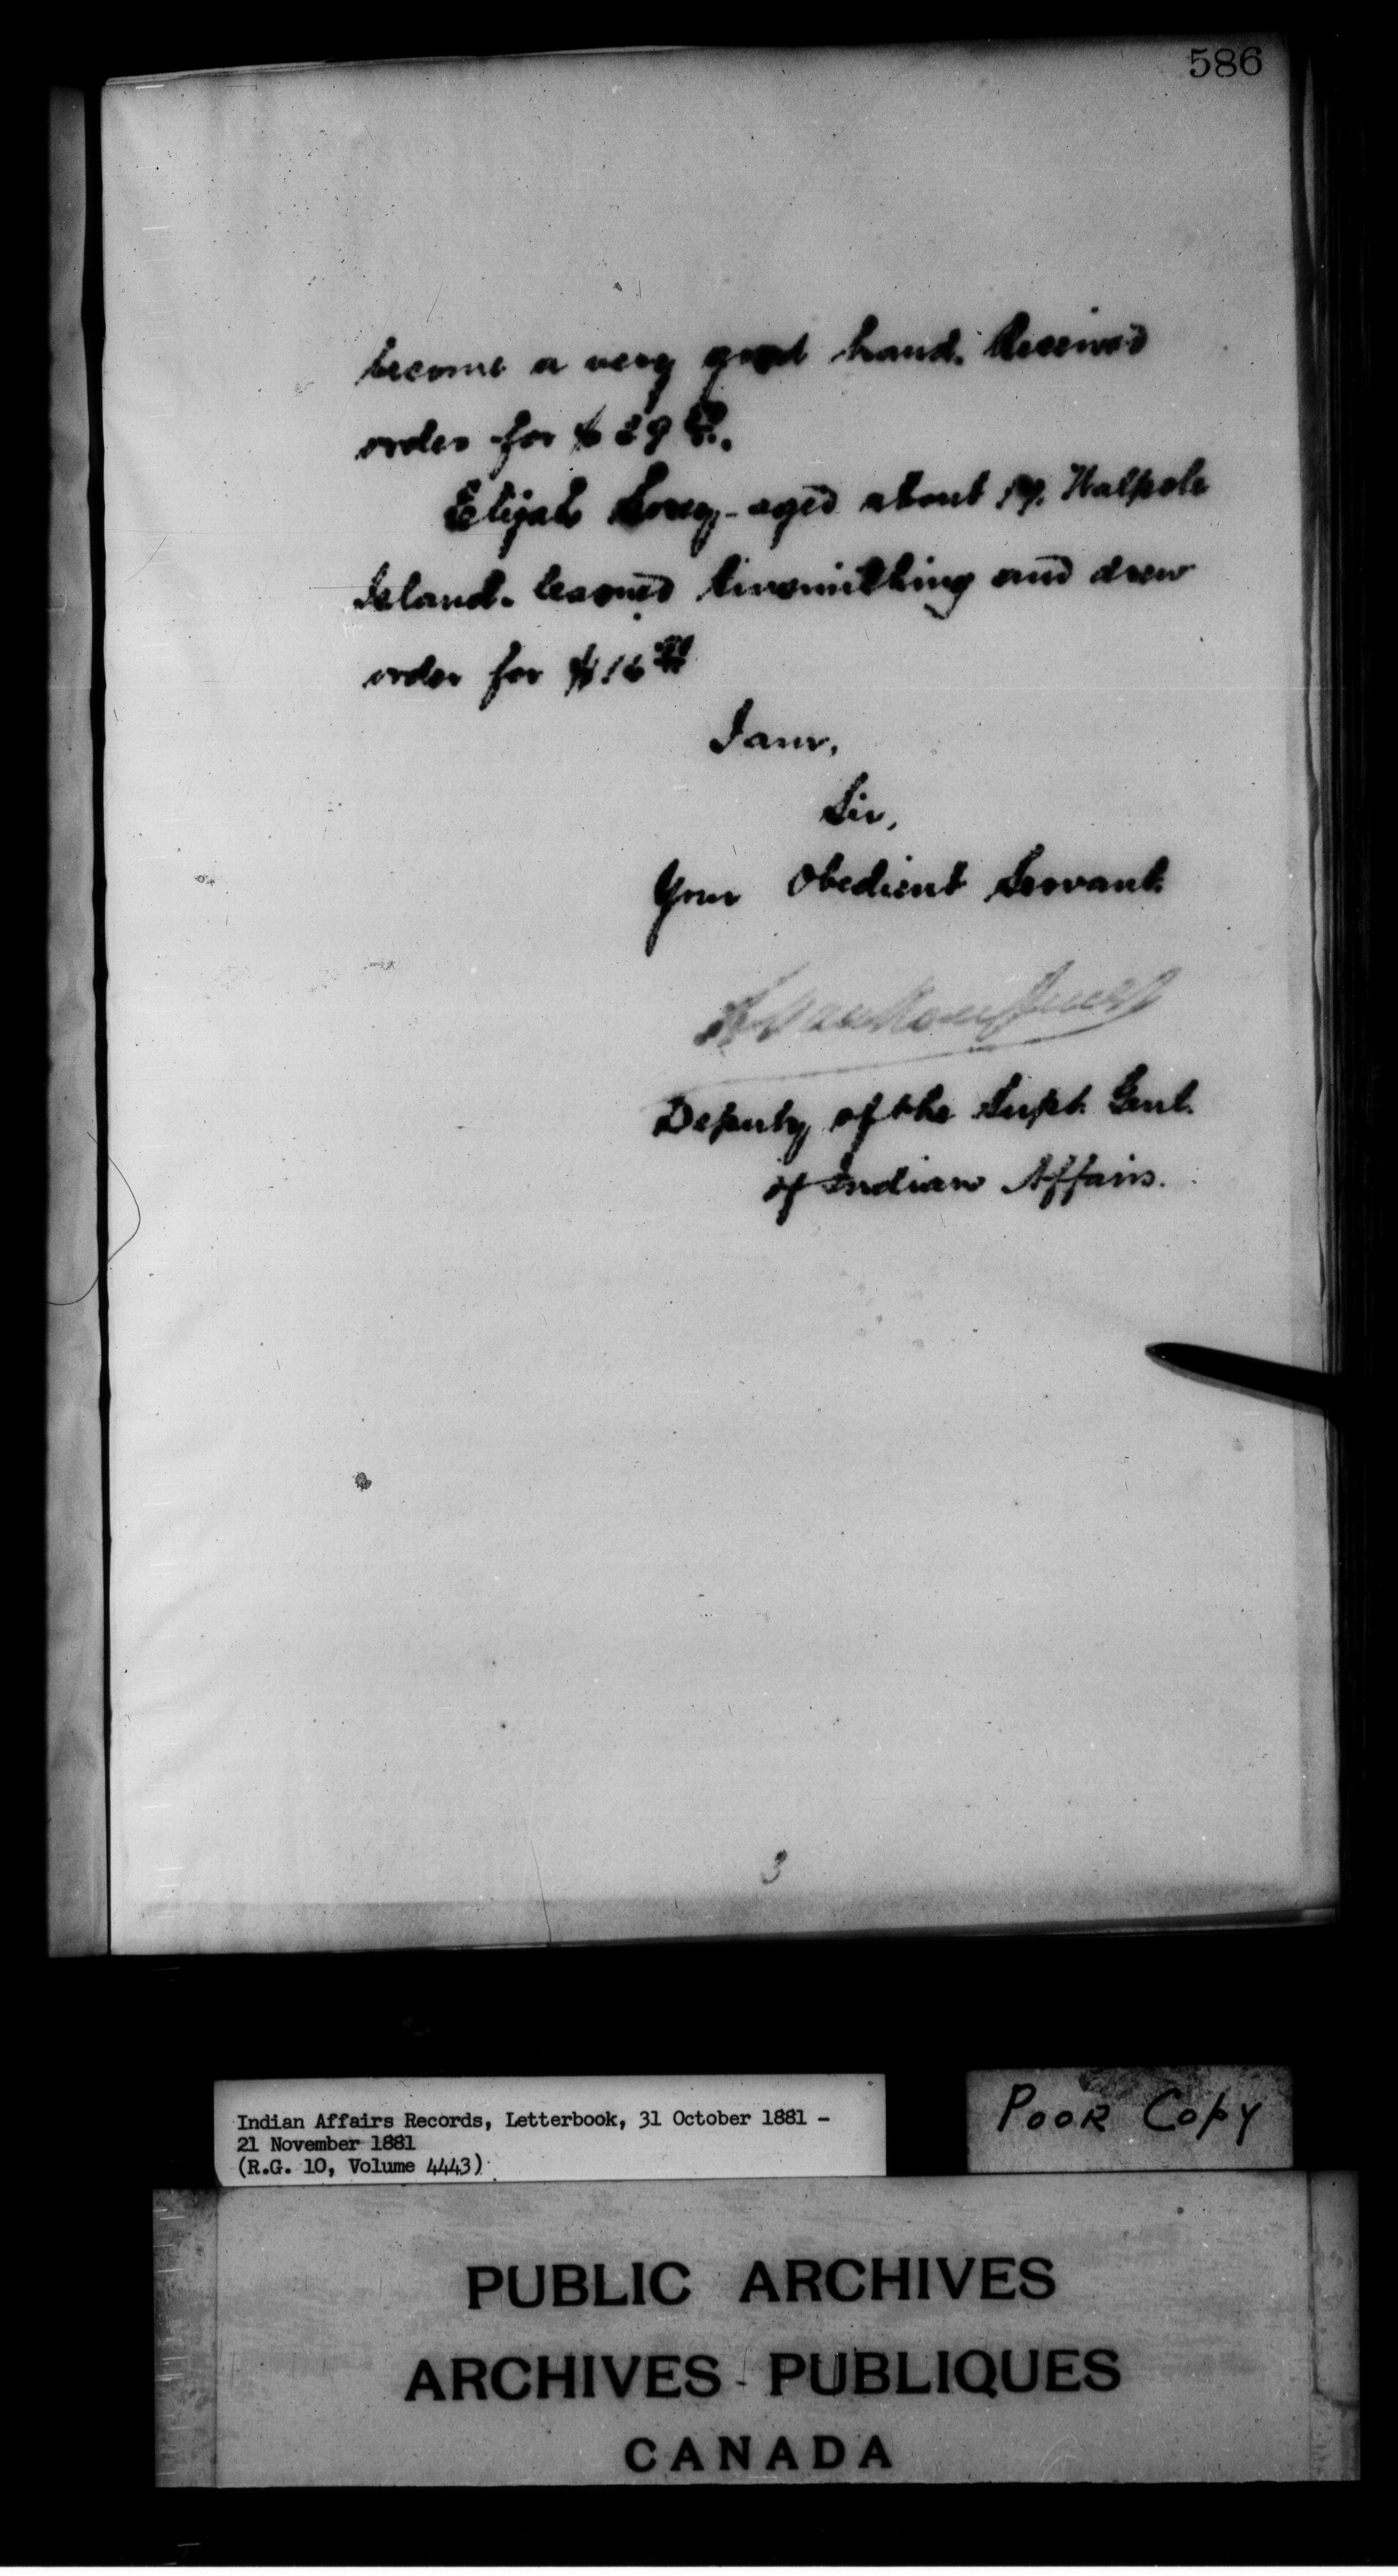 586
become a very good hand. Received
order for $29
Elijah aged about Walpole
Island. learned tinsmithing and drew
order for $16
I am,
Sir,
Your Obedient Servant
L Vankoughnet
Deputy of the Supt. Genl.
of Indian Affairs.
3
Indian Affairs Records, Letterbook, 31 October 1881 -
21 November 1881
(R.G. 10, Volume 4443)
Poor Copy
PUBLIC ARCHIVES
ARCHIVES PUBLIQUES
CANADA